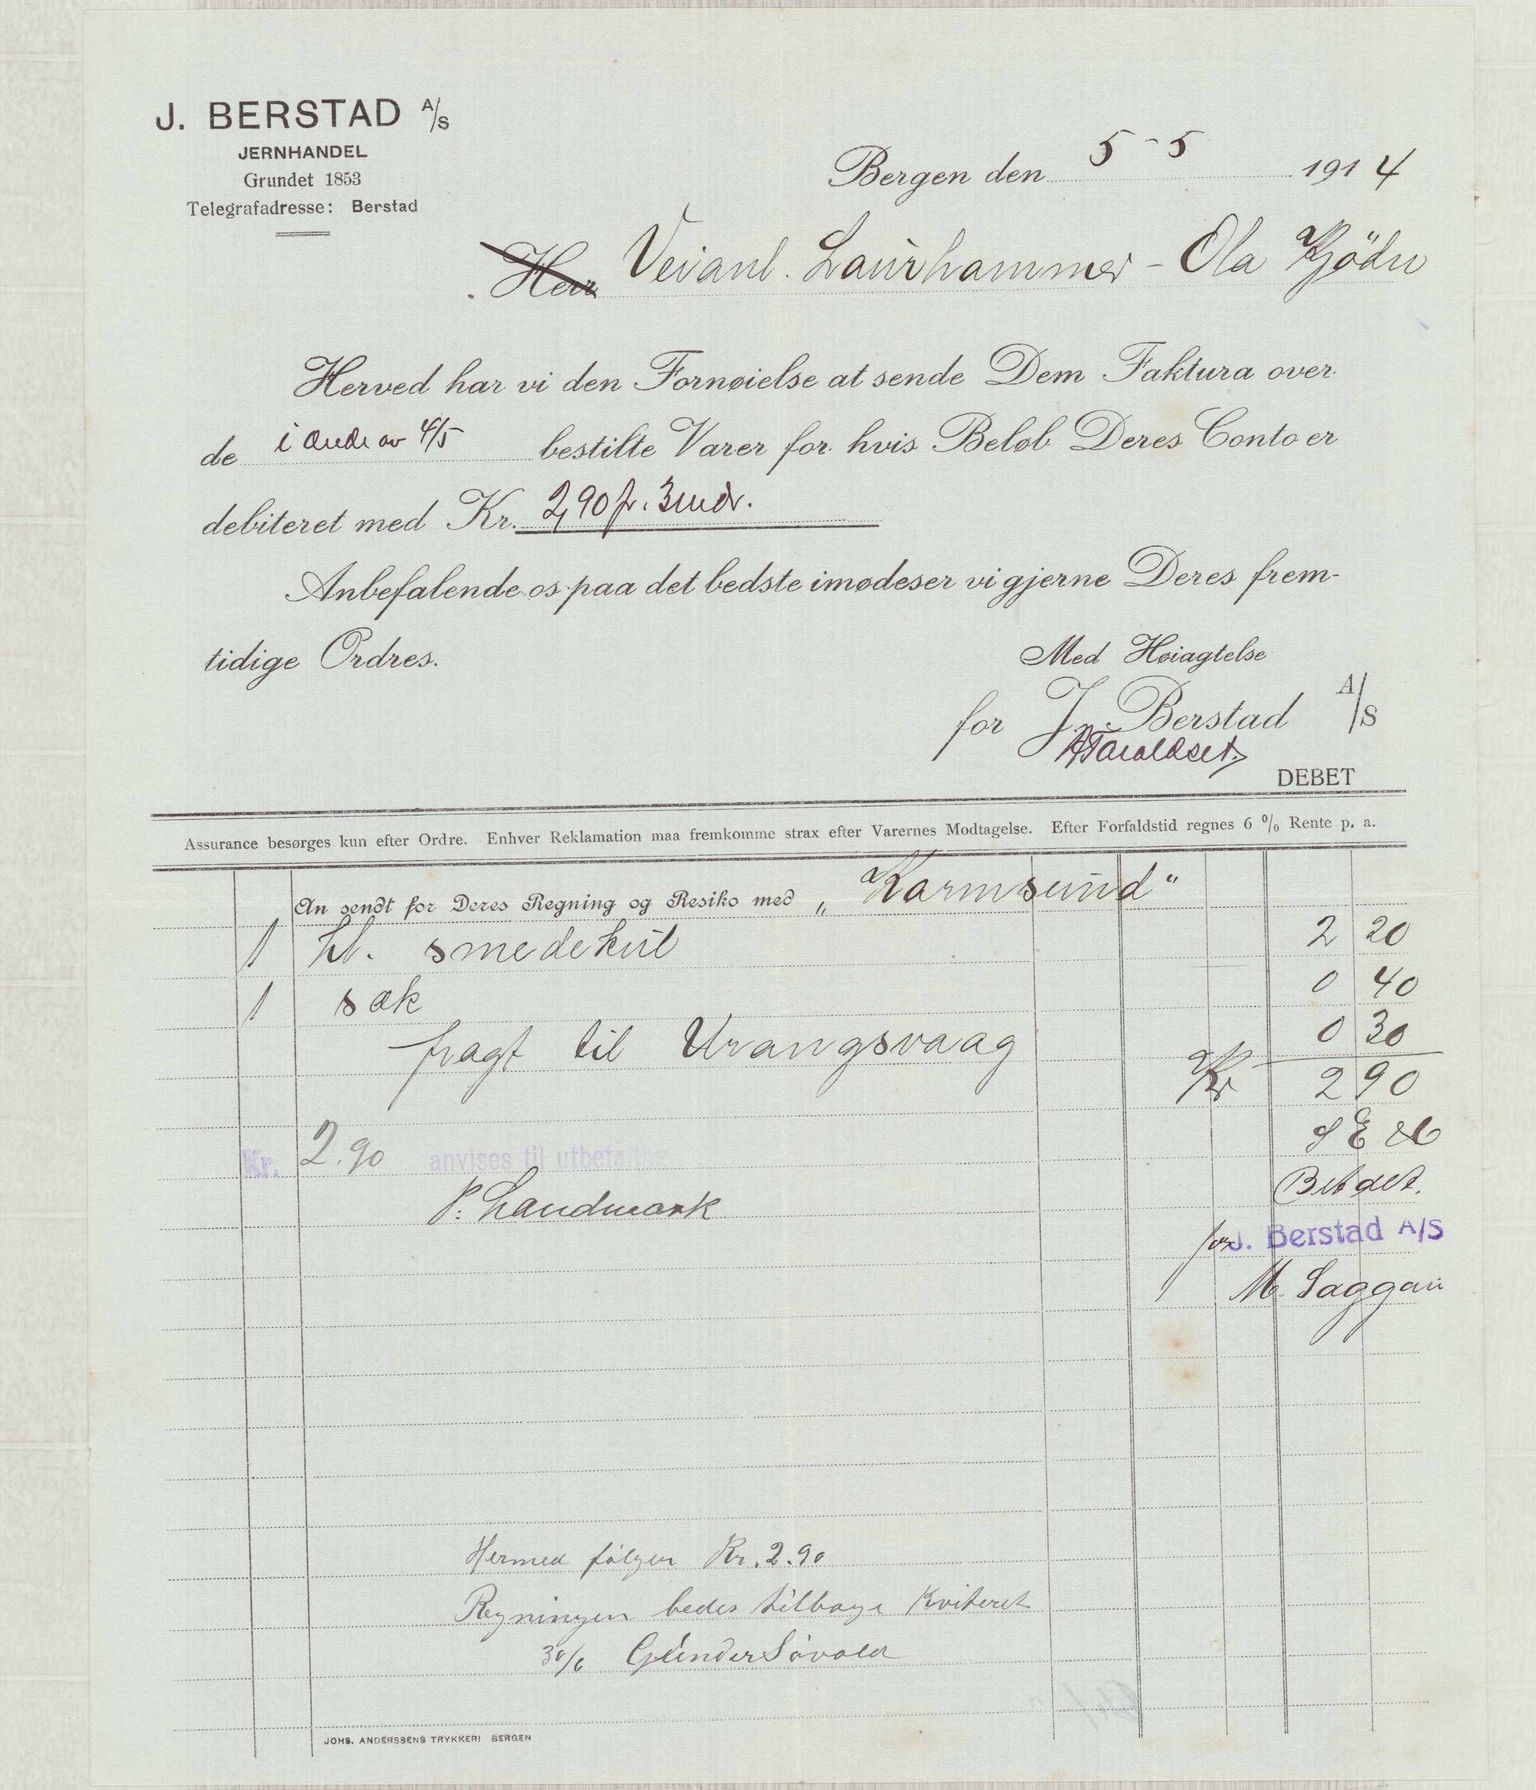 J. BERSTAD A/S
JERNHANDEL
Grundet 1853
Telegrafadresse: Berstad
Bergen den 5-5 1914
Herr Veianl. Laurhammer - Ola Kjödn
Herved har vi den Fornøielse at sende Dem Faktura over
de i av 4/5 bestilte Varer for hvis Beløb Deres Conto er
debiteret med Kr. 2,90 pr. 3 mdr.
Anbefalende os paa det bedste imødeser vi gjerne Deres frem-
tidige Ordres.
Med Høiagtelse
for J. Berstad A/S
DEBET
Assurance besørges kun efter Ordre. Enhver Reklamation maa fremkomme strax efter Varernes Modtagelse. Efter Forfaldstid regnes 6 % Rente p. a.
An sendt for Deres Regning og Resiko med „Karmsund"
1 hl. smedekul 2 20
1 sæk 0 40
fragt til Urangsvaag 0 30
Kr 2 90
S E & O
Kr. 2.90 anvises til utbeta
Betalt.
P. Landmark
for J. Berstad A/S
M. Saggau
Hermed følger Kr. 2.90
Regningen bedes tilbage kviteret
30/6 Gunder Søvold
JOHS. ANDERSSENS TRYKKERI BERGEN